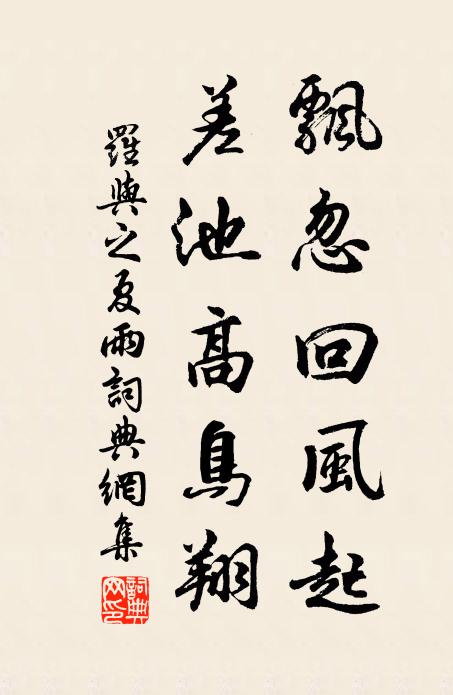 飄忽回風起
差池高鳥翔
羅與之夏雨詞典網集
詞典網印